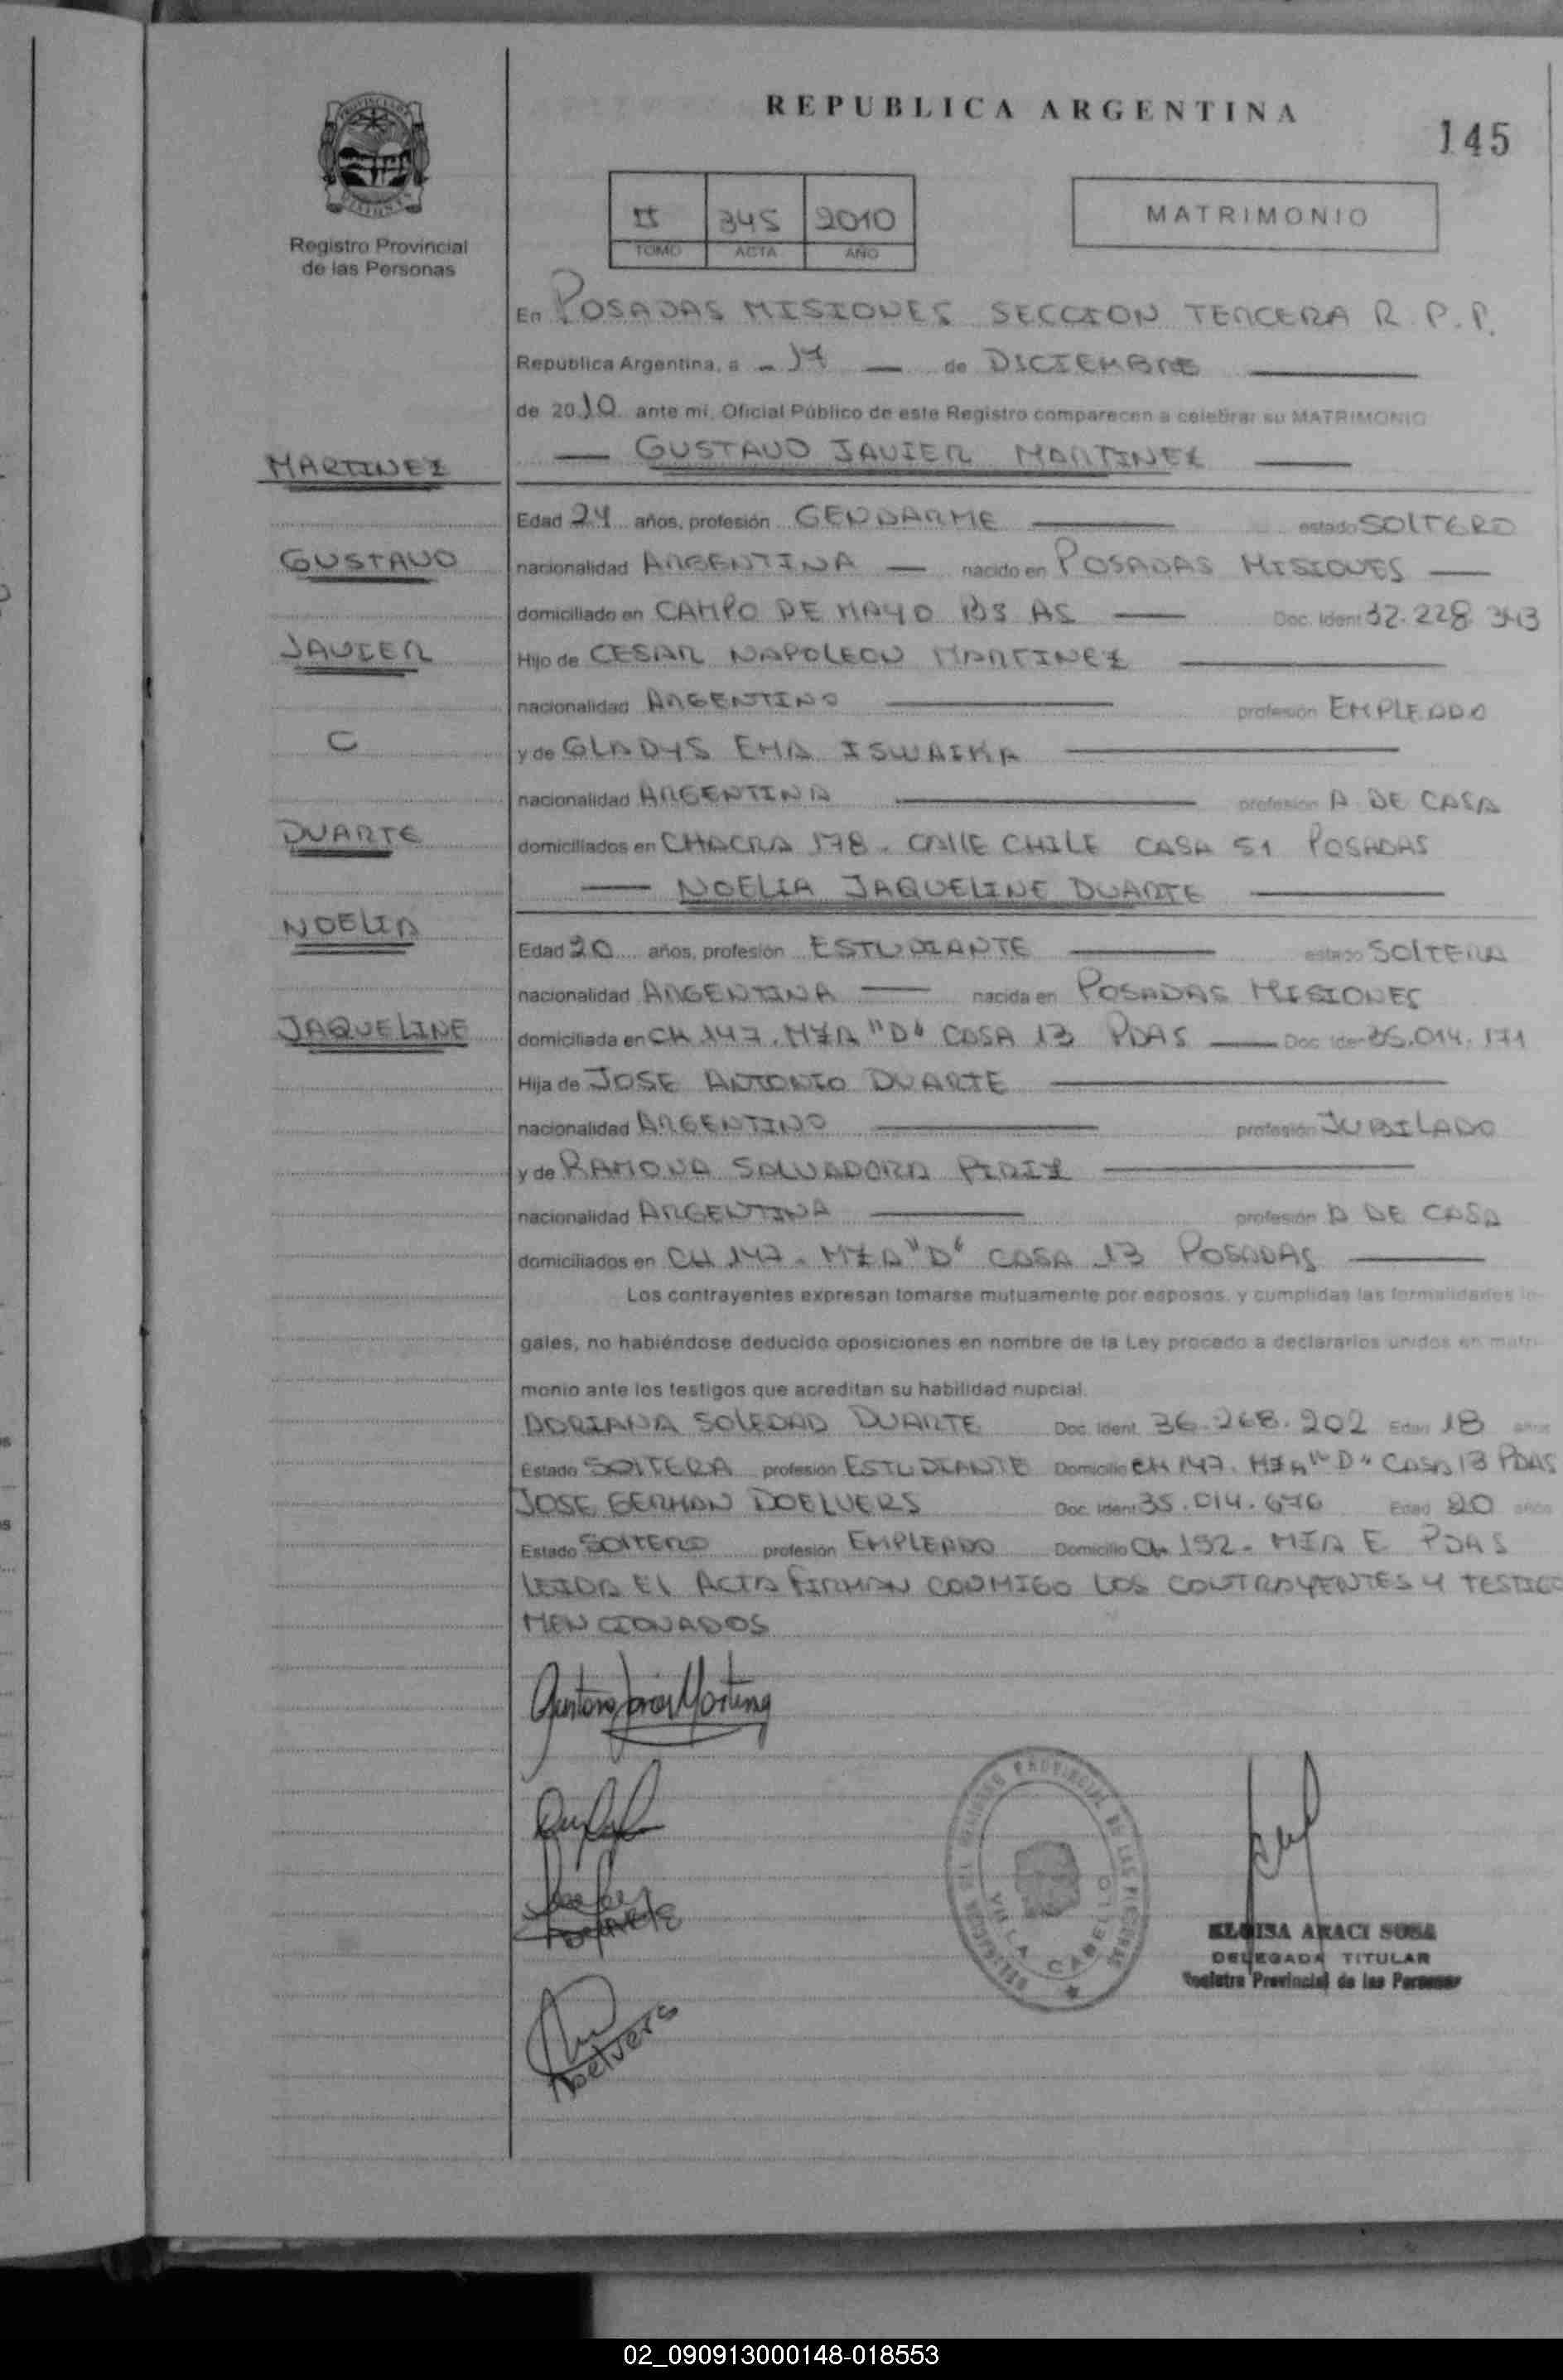 REPUBLICA ARGENTINA
145
Registro Provincial
de las Personas
II 345 2010
TOMO ACTA AÑO
MATRIMONIO
En POSADAS MISIONES SECCION TERCERA R.P.P.
Republica Argentina, a - 17 — de DICIEMBRE
de 2010 ante mi, Oficial Público de este Registro comparecen a celebrar su MATRIMONIO
— GUSTAVO JAVIER MARTINEZ —
MARTINEZ
Edad 24 años, profesión GENDARME — estado SOLTERO
GUSTAVO
nacionalidad ARGENTINA — nacido en POSADAS MISIONES —
domiciliado en CAMPO DE MAYO BS AS — Doc. Ident 32.228.343
JAVIER
Hijo de CESAR NAPOLEON MARTINEZ —
nacionalidad ARGENTINO — profesión EMPLEADO
C
y de GLADYS EMA ISWAIKA —
nacionalidad ARGENTINA — profesión A DE CASA
DUARTE
domiciliados en CHACRA 178. CALLE CHILE CASA 51 POSADAS
— NOELIA JAQUELINE DUARTE —
NOELIA
Edad 20 años, profesión ESTUDIANTE — estado SOLTERA
nacionalidad ARGENTINA — nacida en POSADAS MISIONES
JAQUELINE
domiciliada en CH 147. MZA "D" CASA 13 PDAS — Doc. Iden 35.014.171
Hija de JOSE ANTONIO DUARTE —
nacionalidad ARGENTINO — profesión JUBILADO
y de RAMONA SALVADORA PIRIZ —
nacionalidad ARGENTINA — profesión A DE CASA
domiciliados en CH 147. MZA "D" CASA 13 POSADAS —
Los contrayentes expresan tomarse mutuamente por esposos, y cumplidas las formalidades le-
gales, no habiéndose deducido oposiciones en nombre de la Ley procedo a declararlos unidos en matri-
monio ante los testigos que acreditan su habilidad nupcial.
ADRIANA SOLEDAD DUARTE Doc. Ident. 36.268.202 Edad 18 años
Estado SOLTERA profesión ESTUDIANTE Domicilio CH 147. MZA "D" CASA 13 PDAS
JOSE GERMAN DOELVERS Doc. Ident 35.014.676 Edad 20 años
Estado SOLTERO profesión EMPLEADO Domicilio CH 152. MZA E PDAS
LEIDA EL ACTA FIRMAN CONMIGO LOS CONTRAYENTES Y TESTIGO
MENCIONADOS
Gustavo Javier Martinez
Doelvers
PROVINCIAL DE LAS PERSONAS
VILLA CABELLO
ELOISA ARACI SOSA
DELEGADA TITULAR
Registro Provincial de las Personas
02_090913000148-018553